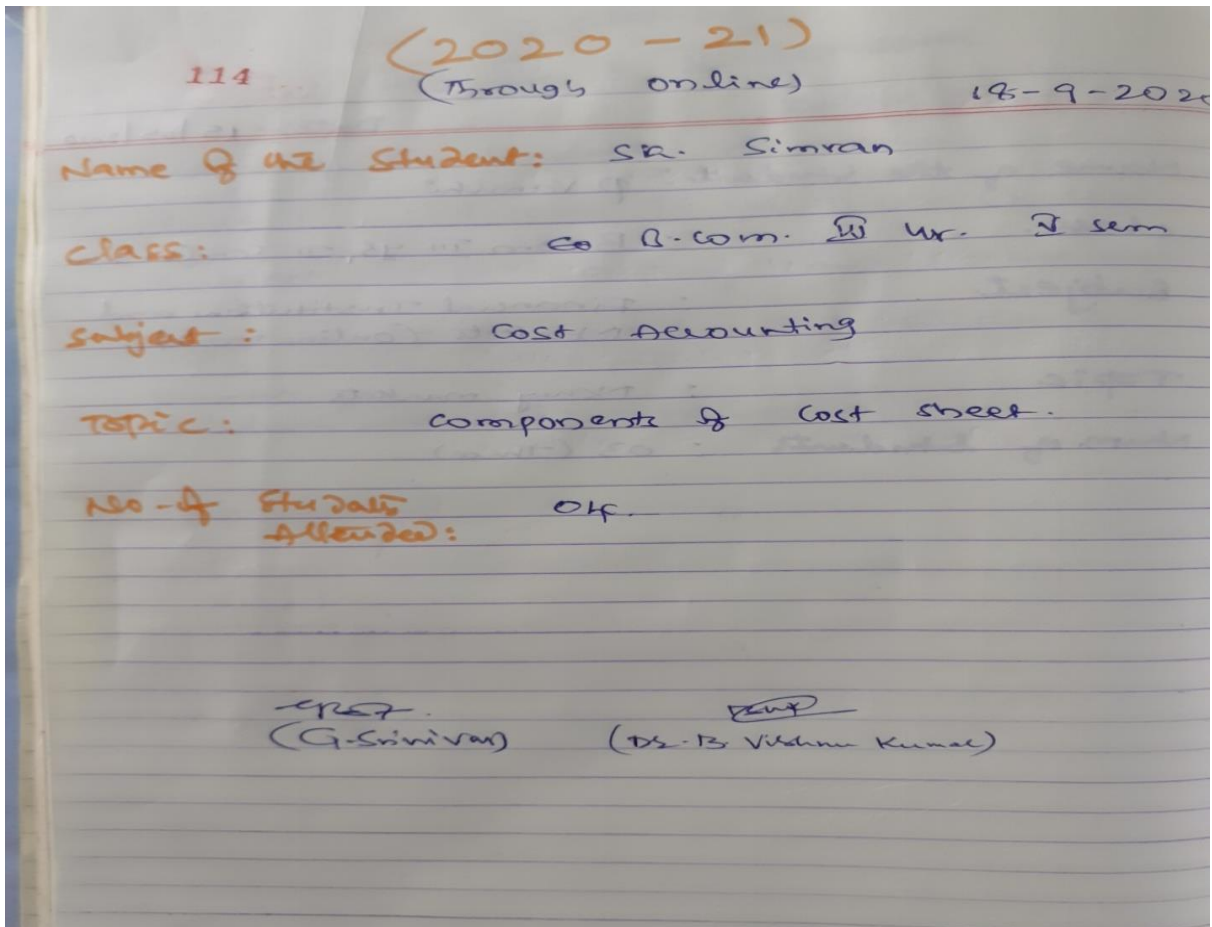 (2020 - 21)
114 (Through online) 18-9-2020
Name of the Student: SK. Simran
Class: B.com. III yr. V sem
Subject: Cost Accounting
Topic: components of Cost sheet.
No-of Students 04.
Attended:
(G. Srinivas) (Dr. B Vishnu Kumar)